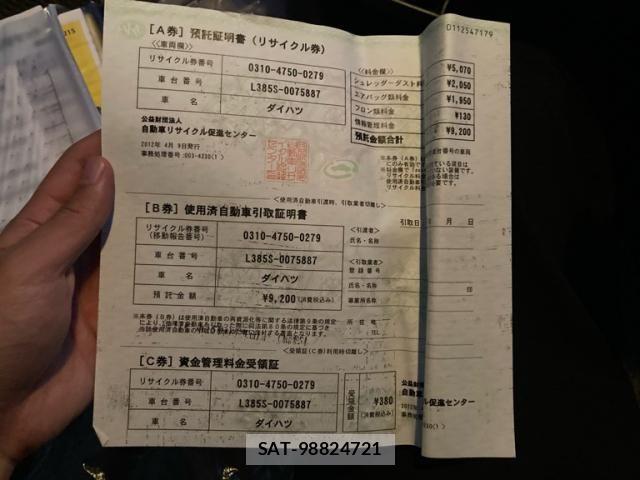 D112547179
[A券] 預託証明書 (リサイクル券)
<<車両欄>>
リサイクル券番号 0310-4750-0279
車台番号 L385S-0075887
車名 ダイハツ
<<料金欄>>
シュレッダーダスト料金 ¥5,070
エアバッグ類料金 ¥2,050
フロン類料金 ¥1,950
情報管理料金 ¥130
預託金額合計 ¥9,200
公益財団法人
自動車リサイクル促進センター
2012年 4月 9日発行
事務処理番号:003-4230(1)
<使用済自動車引渡時、引取業者切離し>
[B券] 使用済自動車引取証明書
引取日 月 日
リサイクル券番号
(移動報告番号) 0310-4750-0279
車台番号 L385S-0075887
車名 ダイハツ
預託金額 ¥9,200(消費税込み)
<引渡者>
氏名・名称
<引取業者>
登録番号
氏名・名称 印
事業所名称
所在地
TEL
<受領証(C券)利用時切離し>
[C券] 資金管理料金受領証
リサイクル券番号 0310-4750-0279
車台番号 L385S-0075887
車名 ダイハツ
受領金額 ¥380
(消費税込み)
SAT-98824721